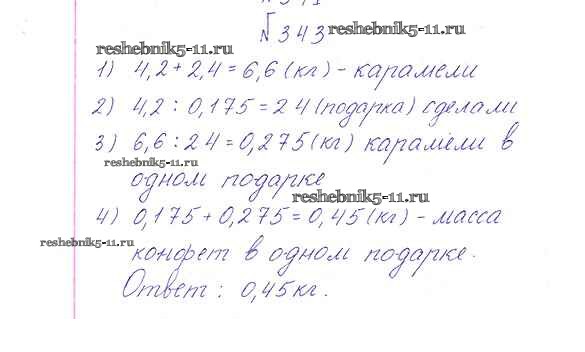 №343 reshebnik5-11.ru
reshebnik5-11.ru
1) 4,2+2,4=6,6(кг)-карамели
2) 4,2:0,175=24(подарка) сделали
3) 6,6:24=0,275(кг) карамели в
reshebnik5-11.ru
одном подарке
reshebnik5-11.ru
4) 0,175+0,275=0,45(кг)-масса
reshebnik5-11.ru
конфет в одном подарке.
Ответ: 0,45кг.